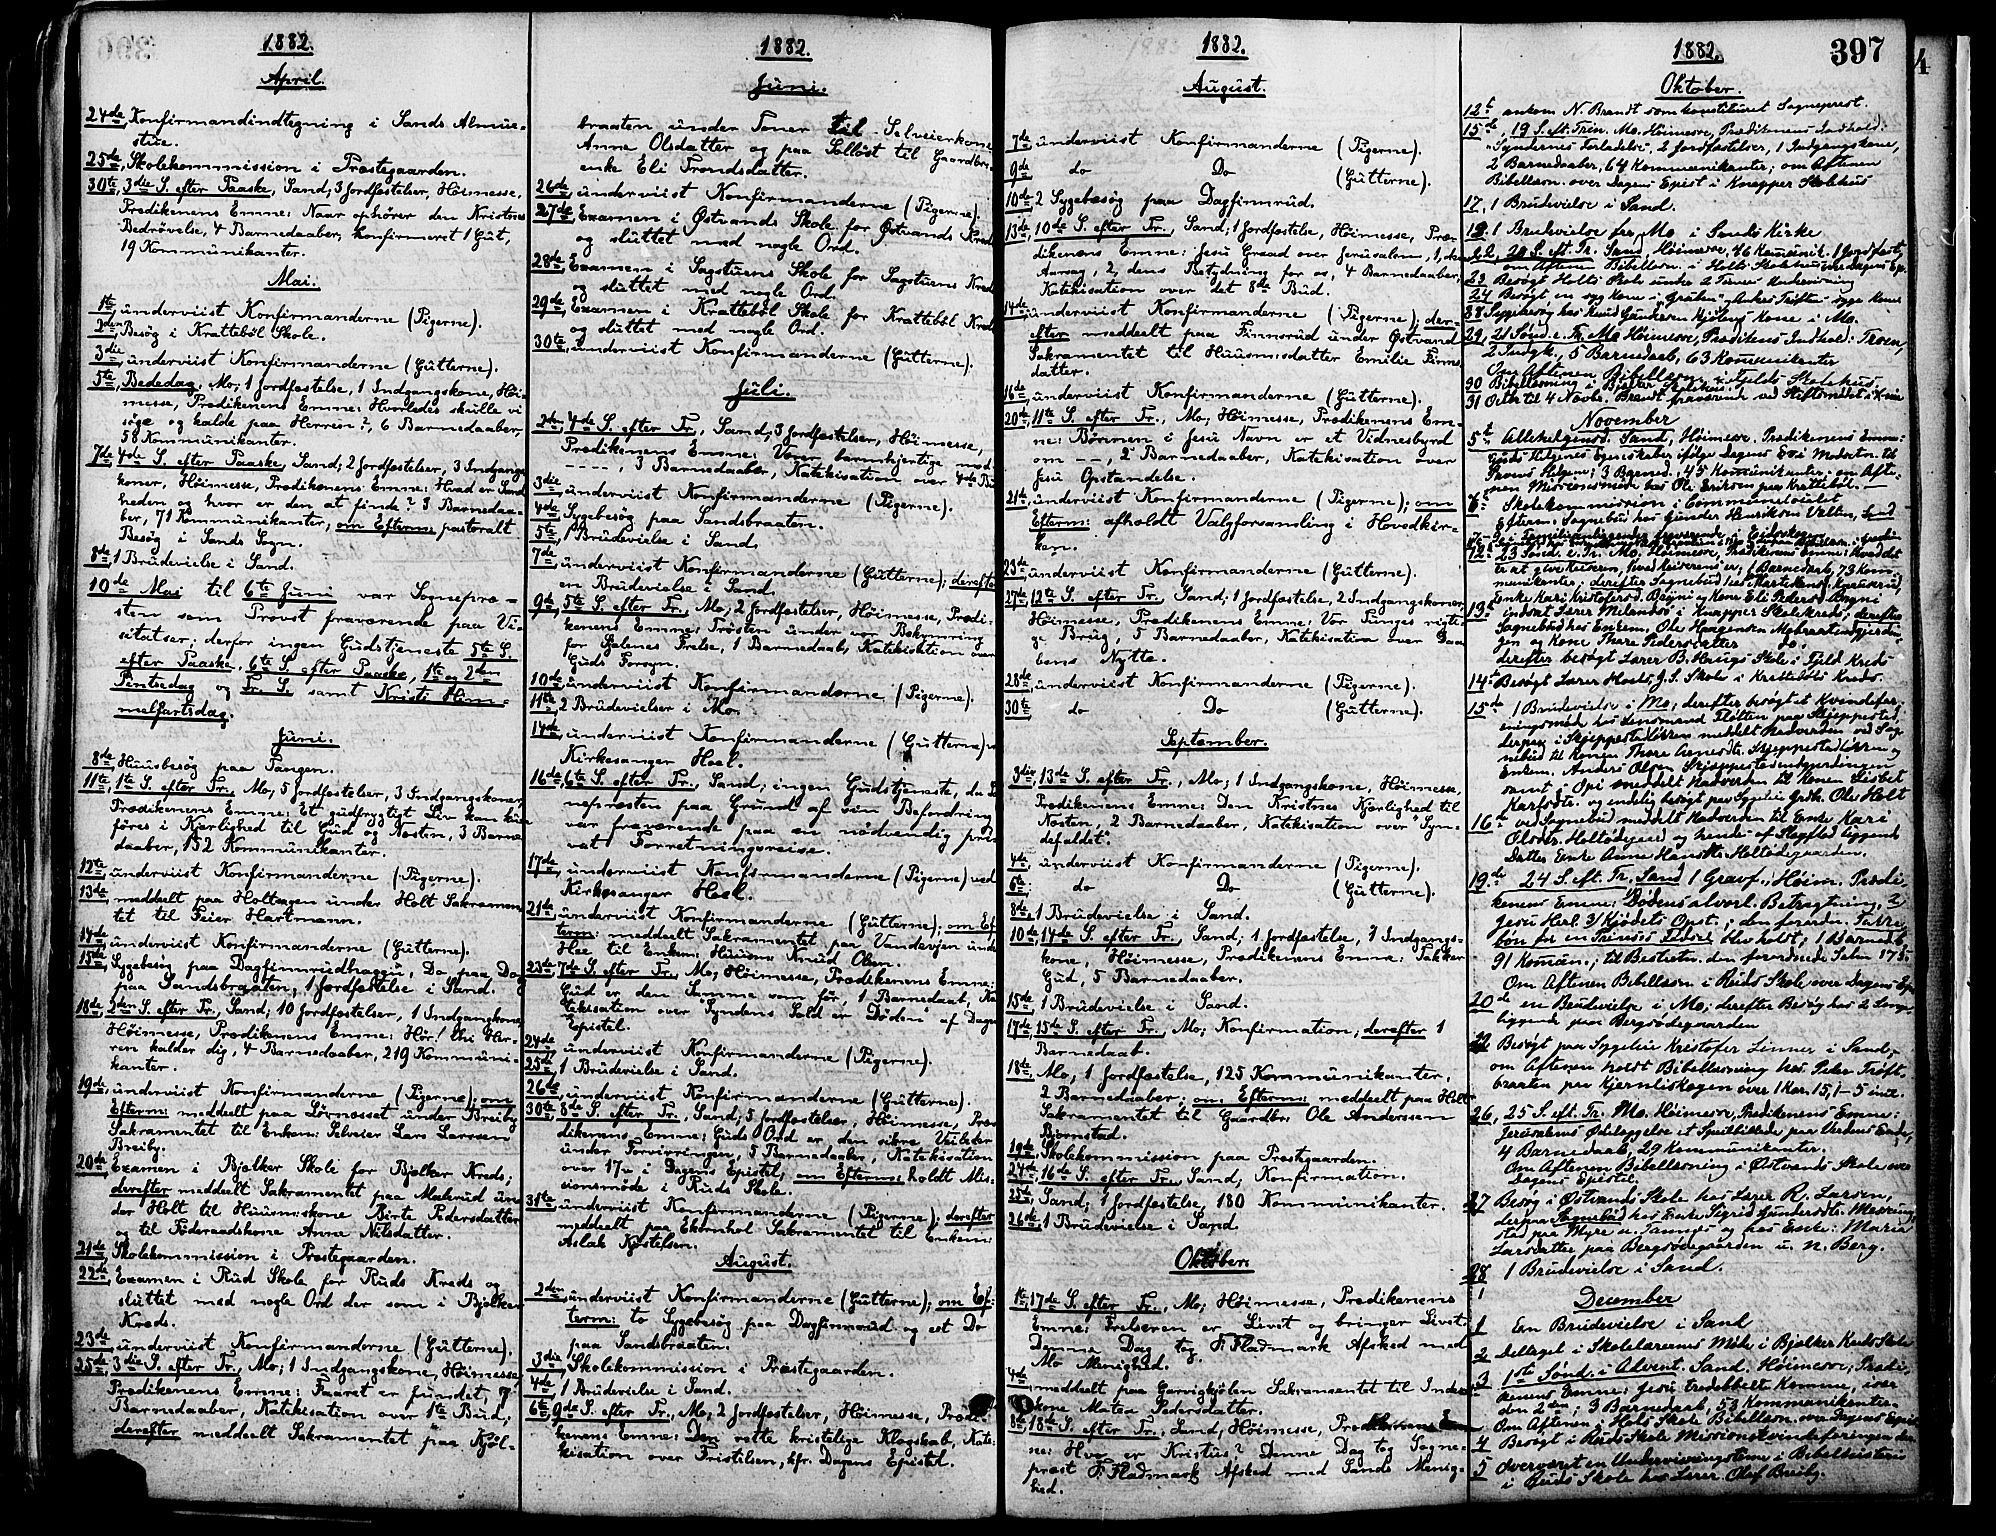 1882.
April.
24de, Konfirmandindtegning i Sands Almue-
stue.
25de, Skolekommission i Præstegaarden.
30te, 3die S. efter Paaske, Sand; 3 Jordfæstelser, Høimesse,
Prædikenens Emne: Naar ophører den Kristnes
Bedrøvelse, 4 Barnedaaber, konfirmeret 1 Gut,
19 Kommunikanter.
Mai.
1ste, underviist Konfirmanderne (Pigerne).
2den, Besøg i Kratteböl Skole.
3die, underviist Konfirmanderne (Gutterne).
5te, Bededag, Mo; 1 Jordfæstelse, 1 Indgangskone, Høi-
messe, Prædikenens Emne: Hvorledes skulle vi
søge og kalde paa Herren?, 6 Barnedaaber,
58 Kommunikanter.
7de, 4de S. efter Paaske, Sand; 2 Jordfæstelser, 3 Indgangs-
koner, Høimesse, Prædikenens Emne: Hvad er Sand-
heden og hvor er den at finde? 3 Barnedaa-
ber, 71 Kommunikanter; om Efterm: pastoralt
Besøg i Sands Sogn.
8de, 1 Brudevielse i Sand.
10de Mai til 6te Juni var Sognepræ-
sten som Provst fraværende paa Vi-
sitatser; derfor ingen Gudstjeneste 5te S.
efter Paaske, 6te S. efter Paaske, 1ste og 2den
Pintsedag og Tr. S. samt Kristi Him-
melfartsdag.
Juni.
8de, Huusbesøg paa Tangen.
11te, 1ste S. efter Tr., Mo; 5 Jordfæstelser, 3 Indgangskoner,
Prædikenens Emne: Et gudfrygtigt Liv kan kun
føres i Kjærlighed til Gud og Næsten, 3 Barne-
daaber, 152 Kommunikanter.
12te, underviist Konfirmanderne (Pigerne).
13de, meddeelt paa Holthagen under Holt Sakramen-
tet til Feier Hartmann.
14de, underviist Konfirmanderne (Gutterne).
15de, Sygebesøg paa Dagfinrudhagen, Do paa Do
paa Sandsbraaten, 1 Jordfæstelse i Sand.
18de, 2den S. efter Tr., Sand; 10 Jordfæstelser, 1 Indgangskone,
Høimesse, Prædikenens Emne: Hør! Thi Her-
ren kalder dig, 4 Barnedaaber, 219 Kommuni-
kanter.
19de, underviist Konfirmanderne (Pigerne); om
Efterm: meddeelt paa Lørnæsset under Breiby
Sakramentet til Enken: Selveier Lars Larssen
Breiby.
20de, Examen i Bjølker Skole for Bjølker Kreds;
derefter meddeelt Sakramentet paa Malerud un-
der Holt til Huusmskone Birte Pedersdatter
og til Föderaadskone Anne Nilsdatter.
21de, Skolekommission i Præstegaarden.
22de, Examen i Rud Skole for Ruds Kreds og
sluttet med nogle Ord der som i Bjølker
Kreds.
23de, underviist Konfirmanderne (Gutterne).
25de, 3die S. efter Tr., Mo; 1 Indgangskone, Høimesse,
Prædikenens Emne: Faaret er fundet, 7
Barnedaaber, Katekisation over 1ste Bud;
derefter meddeelt Sakramentet paa Kjøl-
1882.
Juni.
braaten under Toner til Selveierkone
Anne Olsdatter og paa Solløst til Gaardbr.
enke Eli Trondsdatter.
26de, underviist Konfirmanderne (Pigerne).
27de, Examen i Østvands Skole for Østvands Kreds
og sluttet med nogle Ord.
28de, Examen i Sagstuens Skole for Sagstuens Kreds
og sluttet med nogle Ord.
29de, Examen i Kratteböl Skole for Kratteböl Kreds
og sluttet med nogle Ord.
30te, underviist Konfirmanderne (Gutterne).
Juli.
2den, 4de S. efter Tr., Sand; 3 Jordfæstelser, Høimesse,
Prædikenens Emne: Værer barmhjertige mod
- - - -, 3 Barnedaaber, Katekisation over 4de Bud
3die, underviist Konfirmanderne (Pigerne).
4de, Sygebesøg paa Sandsbraaten.
5te, 1 Brudevielse i Sand.
7de, underviist Konfirmanderne (Gutterne); derefter
en Brudevielse i Sand.
9de, 5te S. efter Tr., Mo; 2 Jordfæstelser, Høimesse, Prædi-
kenens Emne: Trøsten under vor Bekymring
for Sjælenes Frelse, 1 Barnedaab, Katekisation over
Guds Forsyn.
10de, underviist Konfirmanderne (Pigerne).
11te, 2 Brudevielser i Mo.
14de, underviist Konfirmanderne (Gutterne) v.
Kirkesanger Hoel.
16de, 6te S. efter Tr., Sand; ingen Gudstjeneste, da Sog-
nepræsten paa Grund af sin Befordring
var fraværende paa en nødvendig pri-
vat Forretningsreise.
17de, underviist Konfirmanderne (Pigerne) ved
Kirkesanger Hoel.
21de, underviist Konfirmanderne (Gutterne); om Ef-
term: meddeelt Sakramentet paa Vandvien under
Hoe til Enken: Huusm: Knud Olsen.
23de, 7de S. efter Tr., Mo; Høimesse, Prædikenens Emne:
Gud er den Samme som før, 1 Barnedaab, Ka-
tekisation over "Syndens Sold er Døden" af Dagens
Epistel.
24de, underviist Konfirmanderne (Pigerne).
25de, 1 Brudevielse i Sand.
26de, underviist Konfirmanderne (Gutterne).
30te, 8de S. efter Tr., Sand; 5 Jordfæstelser, Høimesse, Præ-
dikenens Emne: Guds Ord er den sikre Veileder
under Forvirringen, 5 Barnedaaber, Katekisation
over 17- i Dagens Epistel, om Efterm: holdt Mis-
sionsmøde i Ruds Skole.
31te, underviist Konfirmanderne (Pigerne); derefter
meddeelt paa Ekornhol Sakramentet til Enkem:
Aslak Kjøstelsen.
August.
2den, underviist Konfirmanderne (Gutterne); om Ef-
term: to Sygebesøg paa Dagfinrud og eet Do
paa Sandsbraaten.
3die, Skolekommission i Præstegaarden.
4de, 1 Brudevielse i Sand.
6te, 9de S. efter Tr., Mo; 2 Jordfæstelser, Høimesse, Prædi-
kenens Emne: Den rette kristelige Klogskab, Kate-
kisation over Fristelsen, kfr. Dagens Epistel.
1882.
August.
7de, underviist Konfirmanderne (Pigerne).
9de, do Do (Gutterne).
10de, 2 Sygebesøg paa Dagfinrud.
13de, 10de S. efter Tr., Sand; 1 Jordfæstelse, Høimesse, Præ-
dikenens Emne: Jesu Graad over Jerusalem, 1, dens
Aarsag, 2, dens Betydning for os, 4 Barnedaaber,
Katekisation over det 8de Bud.
14de, underviist Konfirmanderne (Pigerne); der-
efter meddeelt paa Finnsrud under Østvand
Sakramentet til Huusmsdatter Emilie Finns-
datter.
16de, underviist Konfirmanderne (Gutterne).
20de, 11te S. efter Tr., Mo; Høimesse, Prædikenens Em-
ne: Bønnen i Jesu Navn er et Vidnesbyrd
om - -, 2 Barnedaaber, Katekisation over
Jesu Opstandelse.
21de, underviist Konfirmanderne (Pigerne); om
Efterm: afholdt Valgforsamling i Hovedkir-
ken.
23de, underviist Konfirmanderne (Gutterne).
27de, 12te S. efter Tr., Sand; 1 Jordfæstelse, 2 Indgangskoner,
Høimesse, Prædikenens Emne: Vor Tunges rigti-
ge Brug, 5 Barnedaaber, Katekisation over Daa-
bens Nytte.
28de, underviist Konfirmanderne (Pigerne).
30te, do Do (Gutterne).
September.
3die, 13de S. efter Tr., Mo; 1 Indgangskone, Høimesse,
Prædikenens Emne: Den Kristnes Kjærlighed til
Næsten, 2 Barnedaaber, Katekisation over "Syn-
defaldet".
4de, underviist Konfirmanderne (Pigerne).
6te, do Do (Gutterne).
8de, 1 Brudevielse i Sand.
10de, 14de S. efter Tr., Sand; 1 Jordfæstelse, 1 Indgangs-
kone, Høimesse, Prædikenens Emne: Takker
Gud, 5 Barnedaaber.
15de, 1 Brudevielse i Sand.
17de, 15de S. efter Tr., Mo; Konfirmation; derefter 1
Barnedaab.
18de, Mo, 1 Jordfæstelse, 125 Kommunikanter,
2 Barnedaaber; om Efterm: meddeelt paa Holt
Sakramentet til Gaardbr. Ole Anderssen
Bjørnstad.
19de, Skolekommission paa Præstgaarden.
24de, 16de S. efter Tr., Sand, Konfirmation.
25de, Sand; 1 Jordfæstelse, 180 Kommunikanter.
26de, 1 Brudevielse i Sand
Oktober.
1ste, 17de S. efter Tr., Mo; Høimesse, Prædikenens
Emne: Frelseren er Livet og bringer Livet.
Denne Dag tog F. Fladmark Afsked med
Mo Menighed.
4de, meddeelt paa Garvigkjølen Sakramentet til Inder-
kone Maten Pedersdatter.
8de, 18de S. efter Tr., Sand, Høimesse, Prædikenens Em-
ne: Hvo er Kristus? Denne Dag tog Sogne-
præst F. Fladmark Afsked med Sands Menig-
hed.
1882. 397
Oktober.
12te ankom N. Brandt som konstitueret Sogneprest.
15de, 19 S. eft. Trin. Mo. Høimesse, Prædikenens Indhold:
"Syndernes Forladelse", 2 Jordfæstelser, 1 Indgangskone,
2 Barnedaaber, 64 Kommunikanter; om Aftenen
Bibellæsn. over Dagens Epist i Knapper Skolehus
17, 1 Brudevielse i Sand.
19. 1 Brudvielse for Mo i Sands Kirke
22, 20 S. eft. Tr. Sand, Høimesse, 46 Komunik. 1 Jordfæst,
om Aftenen Bibellæsn. i Holts Skolehus over Dagens Ep.
23 Besøgt Holts Skole under 2 Timers Undervisning
24 Besøgt en syg Kone
28 Sygebesøg hos Knud Kone i Mo.
29, 21 Sønd. e. Tr. Mo Høimesse, Prædikens Indhold: Troen,
2 Indgk., 5 Barnedaab, 63 Kommunikanter
Om Aftenen Bibellæsn. i Fjelds Skolehus
30 Bibellæsning i Bjølker Skolehus
31 Octbr til 4 Novbr. Brandt fraværende ved Stiftsmødet i
November
5te Allehelgensd. Sand, Høimesse, Prædikenens Emne:
Guds Helgenes Egenskaber ifølge Dagens Evi
3 Barned.; 45 Kommunikanter; om Afte-
nen Missionsmøde hos Ole Eriksen paa Kratteböl.
6te Skolekommission i Communelocalet
Efterm. Sognebud hos Henriksen Velten, Sand
12te 23 Sønd. e. Tr. Mo, Høimesse, Prædikenens Emne: Hvad det
er at give Keiseren, hvad Keiserens er; 1 Barnedaab, 73 Kom-
munikanter; derefter Sognebud hos
Enke Kari Kristofersd. Bogni og Kone Eli Pedersd. Bogni
13de indsat Lærer Melandsø i Knapper Skolekreds, derefter
Sognebud hos Enkem. Ole
og Kone Thore Pedersdatter do.
derefter besøgt Lærer B. Haugs Skole i Fjeld Kreds
14de Besøgt Lærer Skole i Kratteböls Kreds.
15de 1 Brudevielse i Mo; derefter besøgt et Kvindefor-
eningsmøde hos Lensmand Fløtten paa Skjeppestad,
derpaa i Skjeppestad meddelt Nadverden ved Sog-
nebud til Konen Thore
Enkem. Anders Olsen
samt i Opi meddelt Nadverden til Konen Lisbet
Karlsdtr. og endelig besøgt paa Sygeleie Grdbr. Ole Holt
16de ved Sognebud meddelt Nadverden til Enke Kari
Olsdtr. Holtødegaard og hendes af Slagflod liggende
Datter Enke Anne Hansdtr. Holtødegaarden.
19de 24 S. eft. Tr. Sand 1 Gravf.; Høim. Prædi-
kenens Emne: Dødens alvorl. Betragtning, 2
Jesu Herl. 3/ Kjødets Opst.; den foreordn. Takke-
bön for en Prinses Fødsel blev holdt; 1 Barnedb
91 Komun.; til Bestretn. den forordnede Salm 175.
Om Aftenen Bibellæsn i Ruds Skole over Dagens Epi
20de en Brudevielse i Mo; derefter Besøg hos 2 Senge-
liggende paa Bergsødegaarden
22 Besøgt paa Sygeleie Kristofer Linner i Sand,
om Aftenen holdt Bibellæsning hos Peder Tröft-
braaten paa Kjernliskogen over 1 Kor. 15, 1-5 incl.
26, 25 S. eft. Tr. Mo. Høimesse, Prædikenens Emne:
Jerusalems Ødelæggelse et Speilbillede paa Verdens Ende,
4 Barnedaab, 29 Kommunikanter.
Om Aftenen Bibellæsning i Østvands Skole over
Dagens Epistel.
27 Besøg i Østvand Skole hos Lærer R. Larsen,
derpaa Sognebud hos Enke Sigrid Gundersdtr.
sted paa Myre u. Tangen og hos Enke Maria
Larsdatter paa Bergsødegaarden u. N. Berg.
28 1 Brudevielse i Sand.
December
1 En Brudevielse i Sand
2 Deltaget i Skolelærernes Møde i Bjølker Kreds Skole
3 1ste Sønd. i Advent. Sand. Høimesse, Prædi-
kenens Emne: Jesu tredobbelt Komme, især
den 2den; 3 Barnedaab, 53 Kommunikanter.
Om Aftenen i Holts Skole Bibellæsn. over Dagens Epistel
4 Besøgt i Ruds Skole Missionskvindeforeningen der
5 Overværet en Undervisningstime i Bibelhistorie
i Ruds Skole hos Lærer Olaf Breiby.